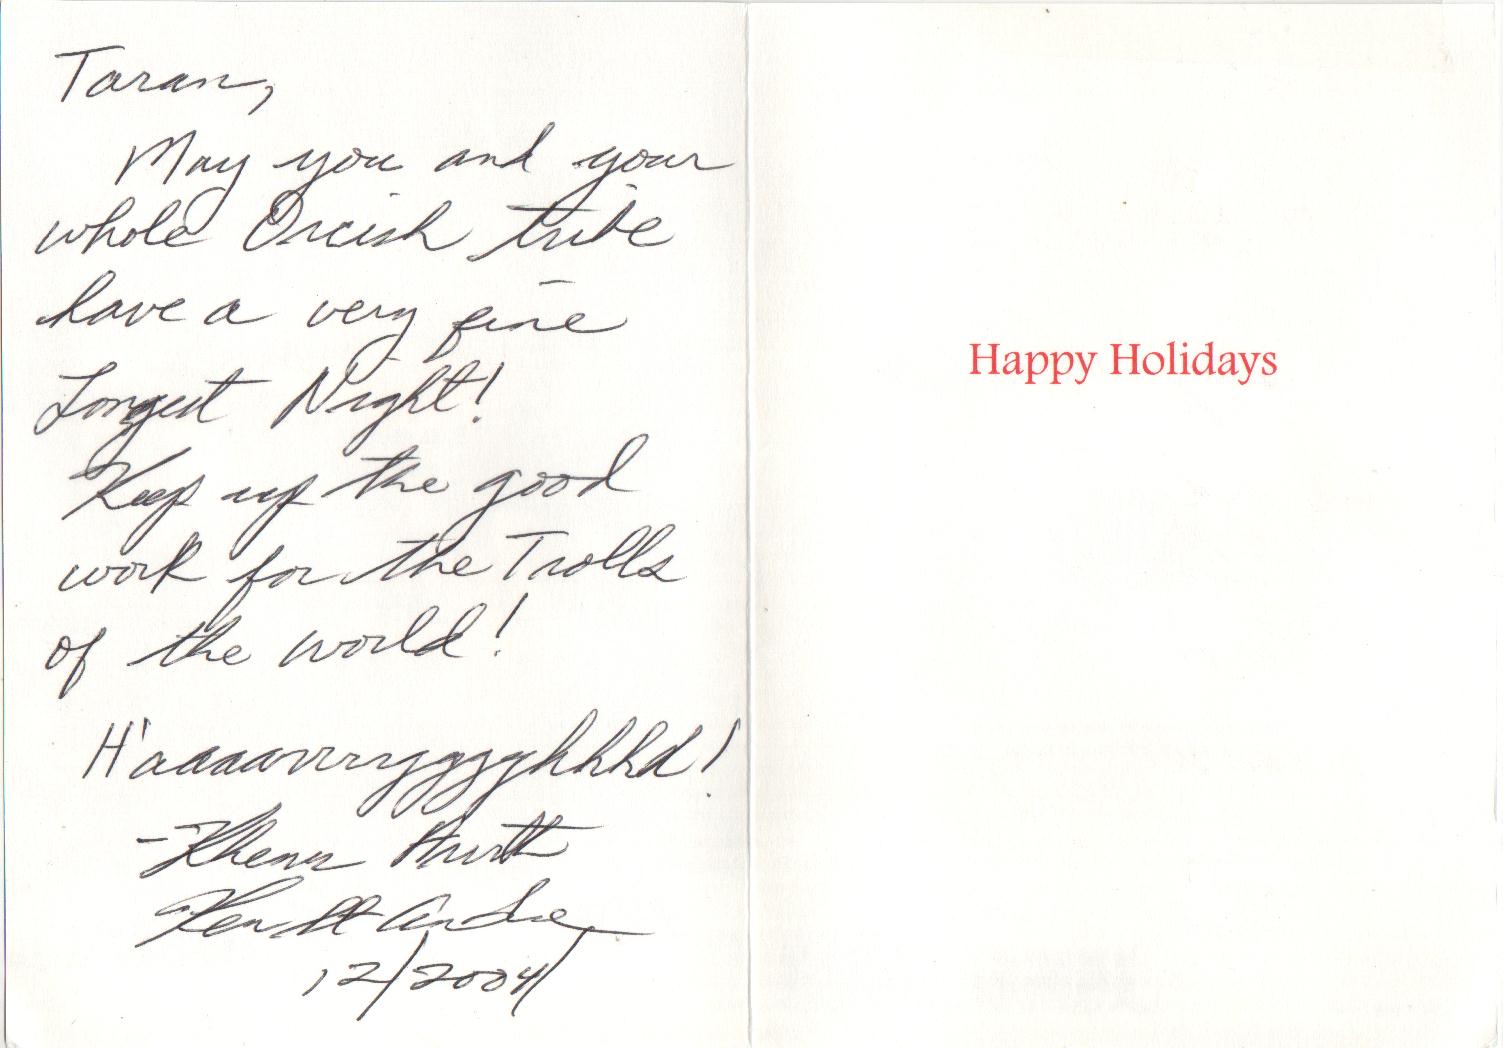 Taran,
May you and your
whole Orcish tribe
have a very fine
Longest Night!
Keep up the good
work for the Trolls
of the world!
H'aaaavrrrygggghhhhd!
-Khenn Arrth
Ken St Andre
12/2004
Happy Holidays